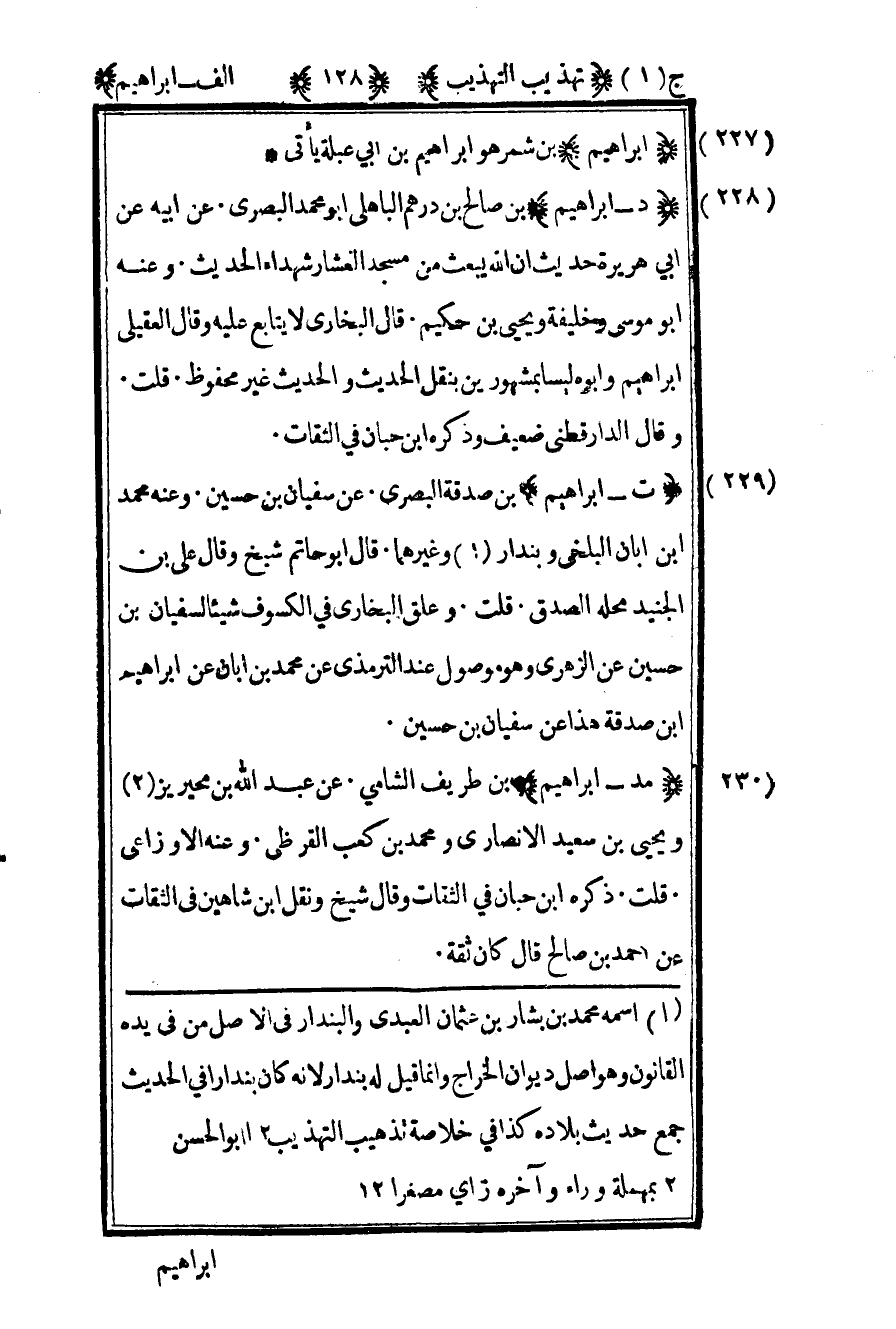 ج (١) ﴿ تهذيب التهذيب ﴾ ﴿ ١٢٨ ﴾ الف ـ ابراهيم ﴾
(٢٢٧) ﴿ ابراهيم ﴾ بن شمر هو ابراهيم بن ابي عبلة يأتى *
(٢٢٨) ﴿ د ـ ابراهيم ﴾ بن صالح بن درهم الباهلى ابو محمد البصرى ٠ عن ابيه عن
ابي هريرة حديث ان الله يبعث من مسجد العشار شهداء الحديث ٠ وعنه
ابو موسى وخليفة ويحيى بن حكيم ٠ قال البخارى لا يتابع عليه وقال العقيلى
ابراهيم وابوه ليسا بمشهورين بنقل الحديث والحديث غير محفوظ ٠ قلت ٠
وقال الدارقطنى ضعيف وذكره ابن حبان في الثقات ٠
(٢٢٩) ﴿ ت ـ ابراهيم ﴾ بن صدقة البصرى ٠ عن سفيان بن حسين ٠ وعنه محمد
ابن ابان البلخى وبندار (١) وغيرهما ٠ قال ابو حاتم شيخ وقال على بن
الجنيد محله الصدق ٠ قلت ٠ وعلق البخارى في الكسوف شيئا لسفيان بن
حسين عن الزهرى وهو موصول عند الترمذى عن محمد بن ابان عن ابراهيم
ابن صدقة هذا عن سفيان بن حسين ٠
٢٣٠) ﴿ مد ـ ابراهيم ﴾ بن طريف الشامي ٠ عن عبد الله بن محيريز (٢)
ويحيى بن سعيد الانصارى ومحمد بن كعب القرظى ٠ وعنه الاوزاعى
٠ قلت ٠ ذكره ابن حبان في الثقات وقال شيخ ونقل ابن شاهين فى الثقات
عن احمد بن صالح قال كان ثقة ٠
(١) اسمه محمد بن بشار بن عثمان العبدى والبندار فى الاصل من فى يده
القانون وهو اصل ديوان الخراج وانما قيل له بندار لانه كان بندارا في الحديث
جمع حديث بلاده كذا في خلاصة تذهيب التهذيب ١٢ ابو الحسن
٢ بمهملة وراء وآخره زاي مصغرا ١٢
ابراهيم